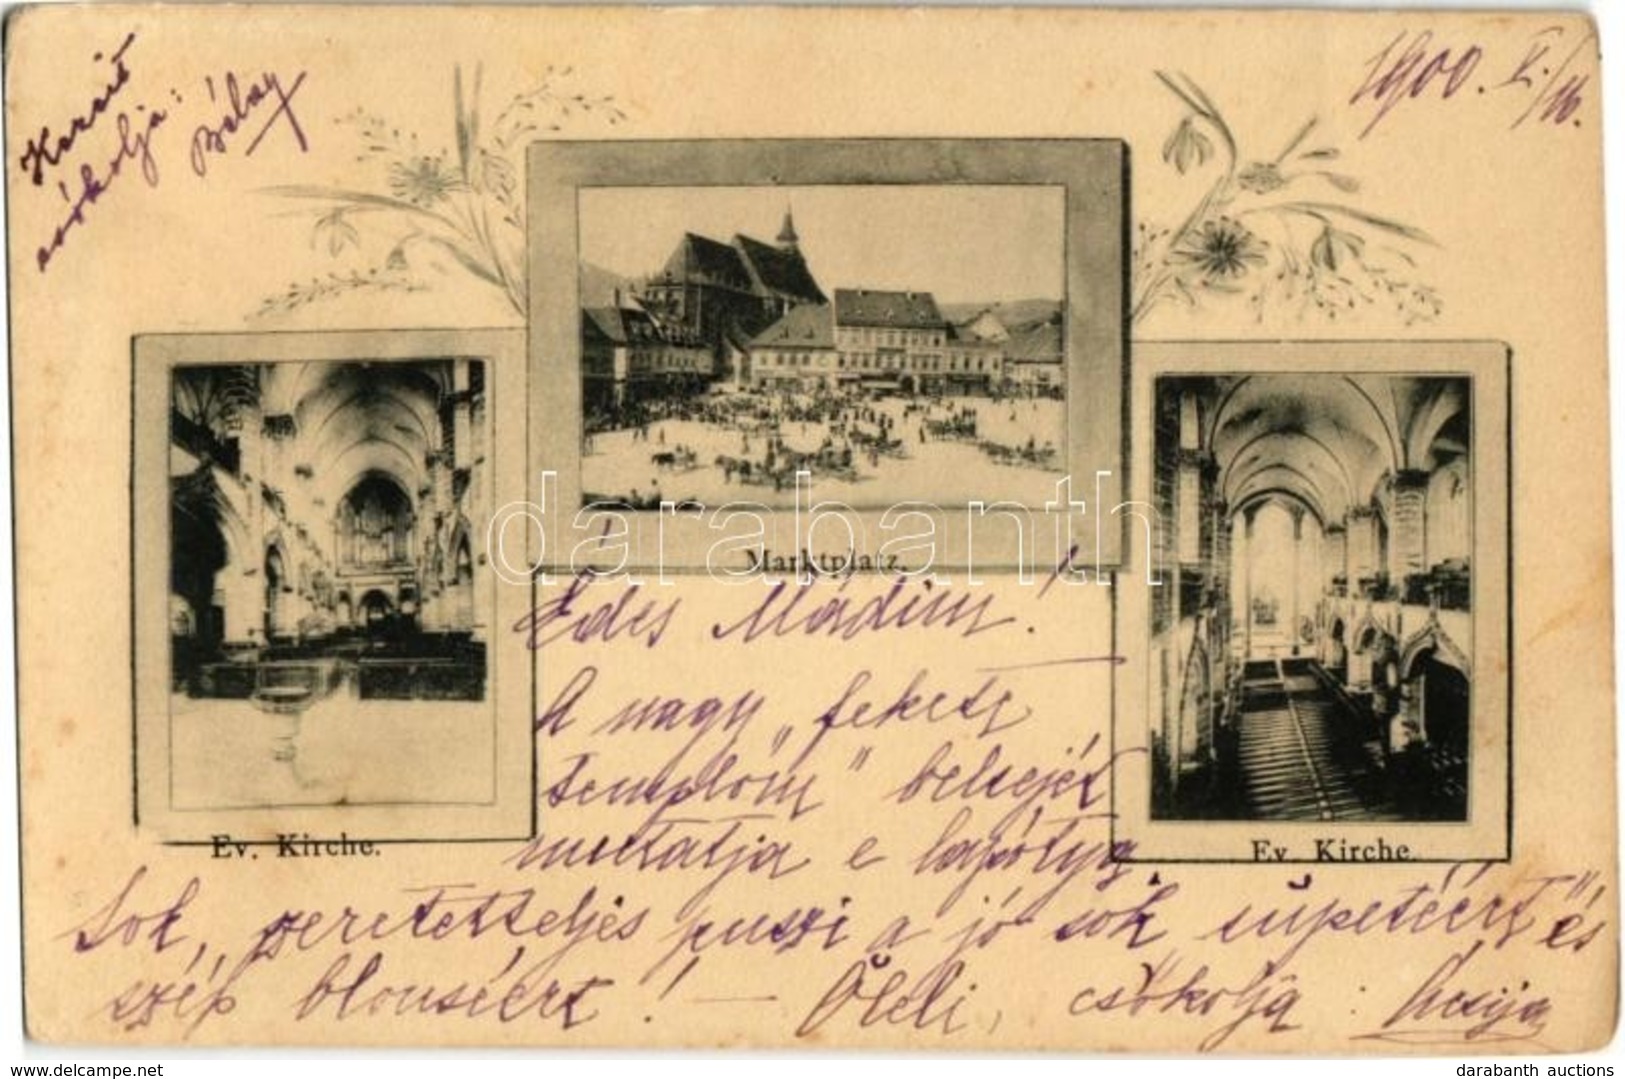 1900. V./16.
Kezeit
csókolja:
Bélay
Marktplatz.
Ev. Kirche.
Ev. Kirche.
Édes Mádim!
A nagy „fekete
templom" belsejét
mutatja e lapótya,
Sok, szeretetteljes puszi a jó sok „süpetéért" és
szép blouséért! — Öleli, csókolja:
darabanth
darabanth auctions
delcampe.net